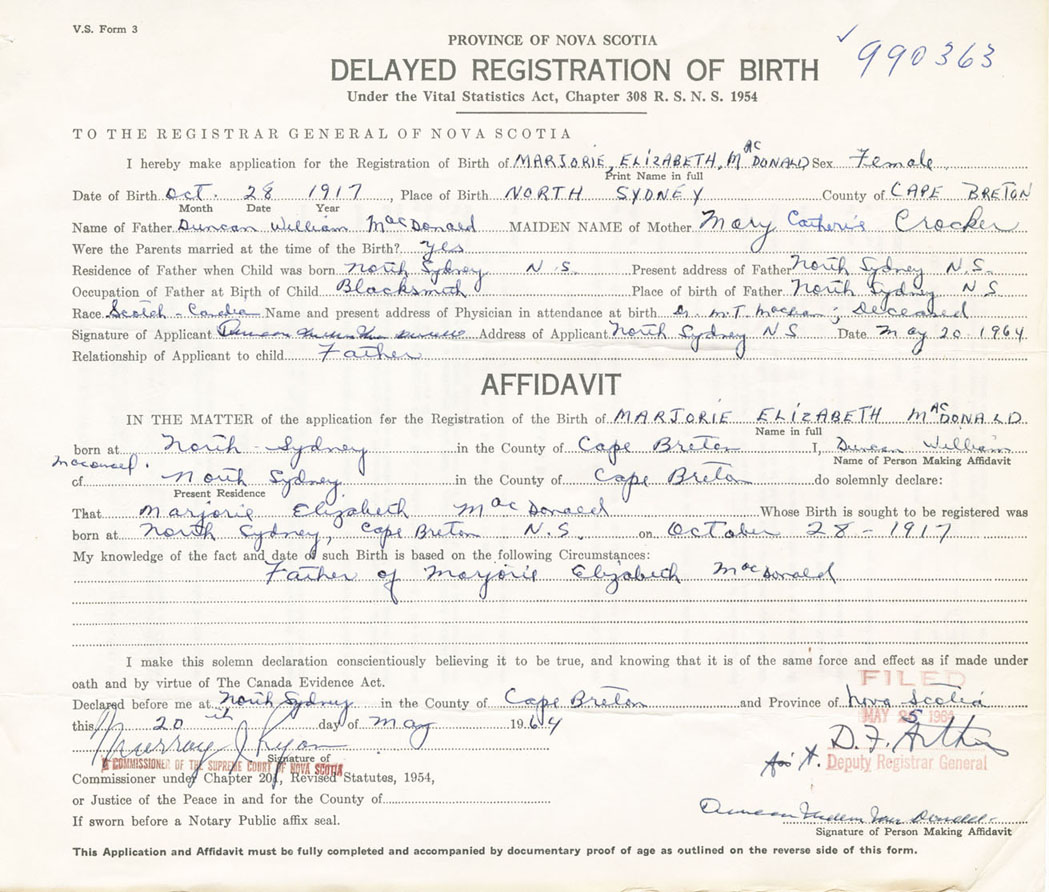 V.S. Form 3
✓ 990363
PROVINCE OF NOVA SCOTIA
DELAYED REGISTRATION OF BIRTH
Under the Vital Statistics Act, Chapter 308 R. S. N. S. 1954
TO THE REGISTRAR GENERAL OF NOVA SCOTIA
I hereby make application for the Registration of Birth of MARJORIE, ELIZABETH, MACDONALD Sex Female
Print Name in full
Date of Birth Oct. 28 1917, Place of Birth NORTH SYDNEY County of CAPE BRETON
Month Date Year
Name of Father Duncan William MacDonald MAIDEN NAME of Mother Mary Catherine Crocker
Were the Parents married at the time of the Birth? Yes
Residence of Father when Child was born North Sydney N.S. Present address of Father North Sydney N.S.
Occupation of Father at Birth of Child Blacksmith Place of birth of Father North Sydney N S
Race Scotch - Name and present address of Physician in attendance at birth Dr. M.T. ; Deceased
Signature of Applicant Duncan Address of Applicant North Sydney NS Date May 20 1964
Relationship of Applicant to child Father
AFFIDAVIT
IN THE MATTER of the application for the Registration of the Birth of MARJORIE ELIZABETH MACDONALD
Name in full
born at North - Sydney in the County of Cape Breton I, Duncan William
Name of Person Making Affidavit
of North Sydney in the County of Cape Breton do solemnly declare:
Present Residence
That Marjorie Elizabeth MacDonald Whose Birth is sought to be registered was
born at North Sydney, Cape Breton N.S. on October 28 - 1917
My knowledge of the fact and date of such Birth is based on the following Circumstances:
Father of Marjorie Elizabeth MacDonald
I make this solemn declaration conscientiously believing it to be true, and knowing that it is of the same force and effect as if made under
oath and by virtue of The Canada Evidence Act.
FILED
Declared before me at North Sydney in the County of Cape Breton and Province of Nova Scotia
MAY 25 1964
this 20th day of May 1964
Murray J Ryan
D.F. Arthur
Signature of
A COMMISSIONER OF THE SUPREME COURT OF NOVA SCOTIA
Deputy Registrar General
Commissioner under Chapter 201, Revised Statutes, 1954,
or Justice of the Peace in and for the County of
If sworn before a Notary Public affix seal.
Duncan William MacDonald
Signature of Person Making Affidavit
This Application and Affidavit must be fully completed and accompanied by documentary proof of age as outlined on the reverse side of this form.